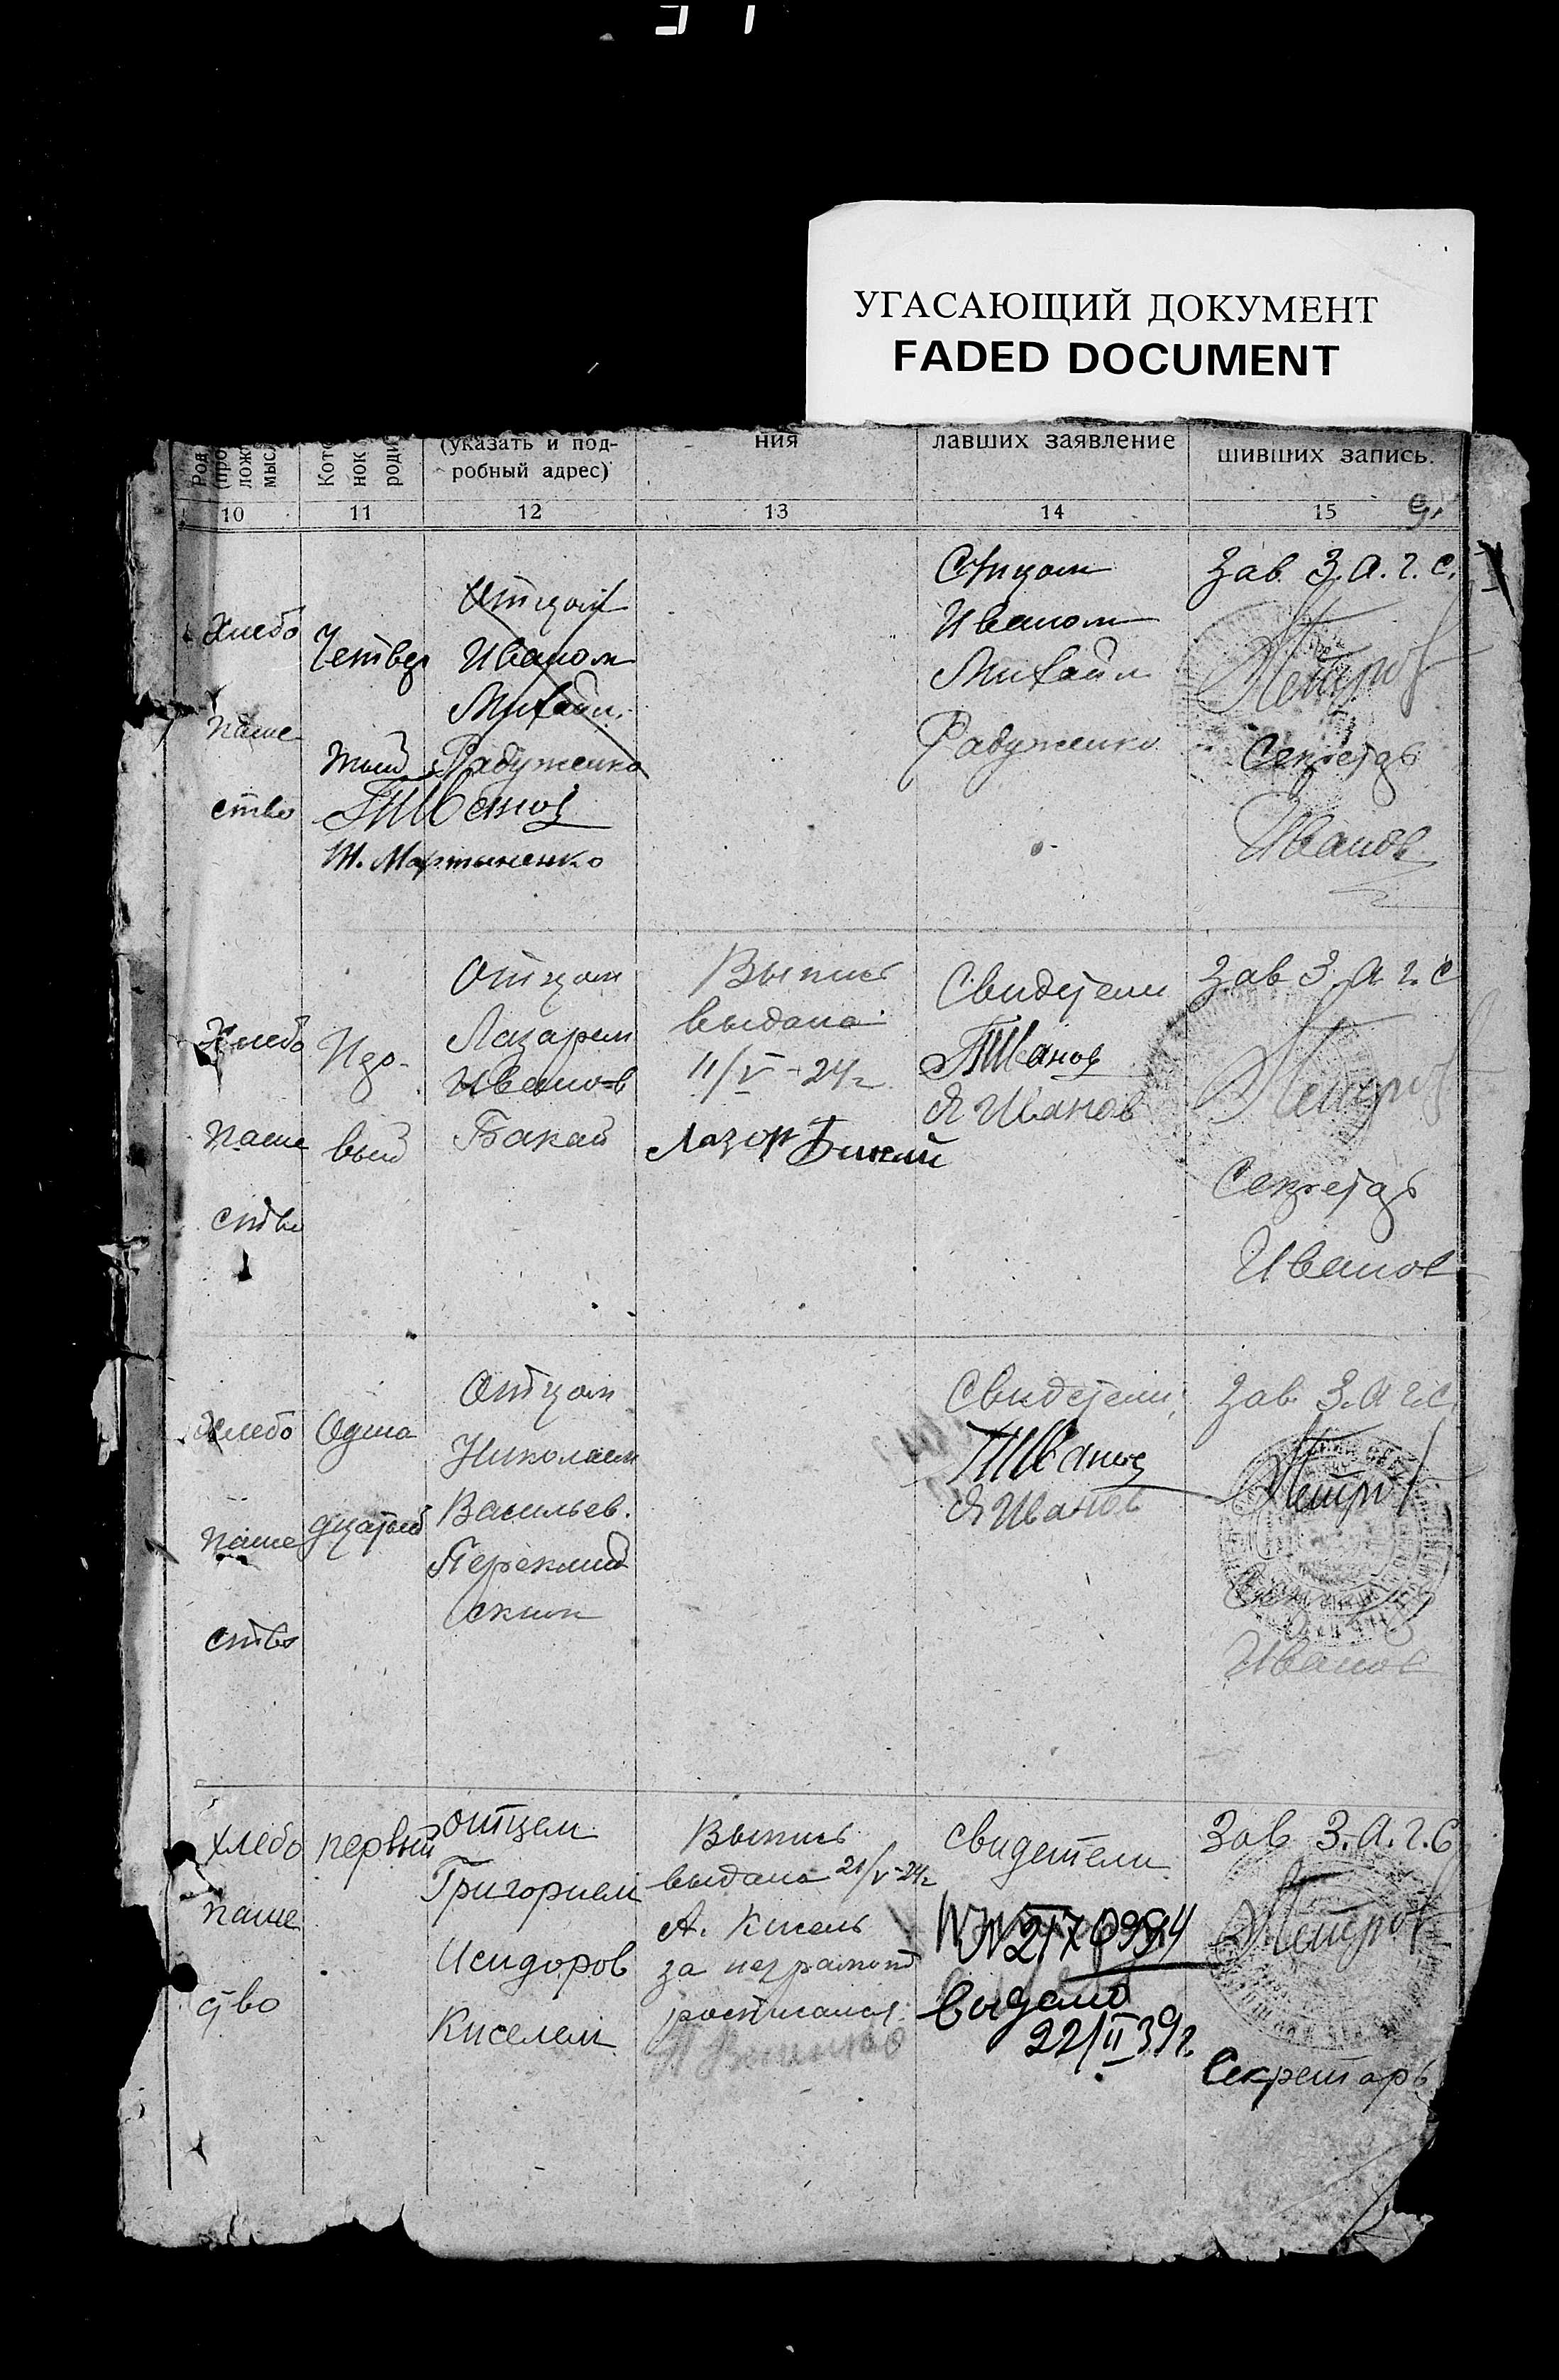 УГАСАЮЩИЙ ДОКУМЕНТ
FADED DOCUMENT
(указать и под-
робный адрес)
ния
лавших заявление
шивших запись.
10
11
12
13
14
15
9.
Хлебо
паше
ство
Четвер
тый
Отцом
Иваном
Михайл.
Радуженко
Т Иванов
Т. Мартыненко
Отцом
Иваном
Михайл
Радуженко
Зав. З. А. Г. С.
Петров
Секретарь
Иванов
Хлебо
паше
ство
Пер-
вый
Отцом
Лазарем
Иванов
Бакай
Выпись
выдана
11/V-24г
Лазор Бикай
Свидетели
Т Иванов
Я Иванов
Зав З. А. Г. С
Петров
Секретарь
Иванов
Хлебо
паше
ство
Одина
дцатый
Отцом
Николаем
Васильев.
Свидетели
Т Иванов
Я Иванов
Зав. З. А Г. С.
Петров
Иванов
Хлебо
паше
ство
первый
отцем
Григорием
Исидоров
Киселем
Выпись
выдана 21/V-24г
А. Кисель
за неграмот
росписался
свидетели
выдано
22/II 39г.
Зав З. А. Г. С
Петров
Секретарь